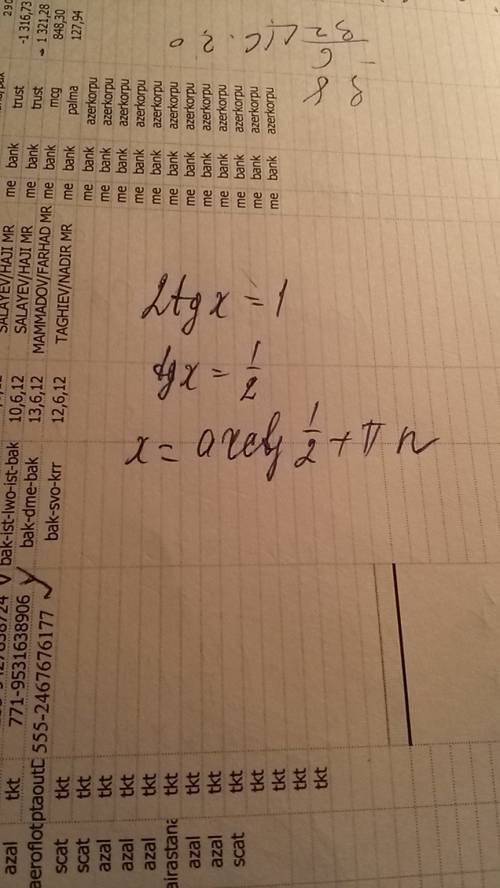 2tgx = 1
tgx = 1/2
x = arctg 1/2 + πn
290
SALAYEV/HAJI MR me bank
bak-ist-lwo-ist-bak 10,6,12 SALAYEV/HAJI MR me bank trust -1 316,73
azal tkt 771-9531638906 bak-dme-bak 13,6,12 MAMMADOV/FARHAD MR me bank trust 1 321,28
aeroflot 555-2467676177 bak-svo-krr 12,6,12 TAGHIEV/NADIR MR me bank mcg 848,30
scat tkt me bank palma 127,94
scat tkt me bank azerkorpu
azal tkt me bank azerkorpu
azal tkt me bank azerkorpu
azal tkt me bank azerkorpu
airastana tkt me bank azerkorpu
azal tkt me bank azerkorpu
azal tkt me bank azerkorpu
scat tkt me bank azerkorpu
tkt me bank azerkorpu
tkt me bank azerkorpu
tkt me bank azerkorpu
tkt me bank azerkorpu